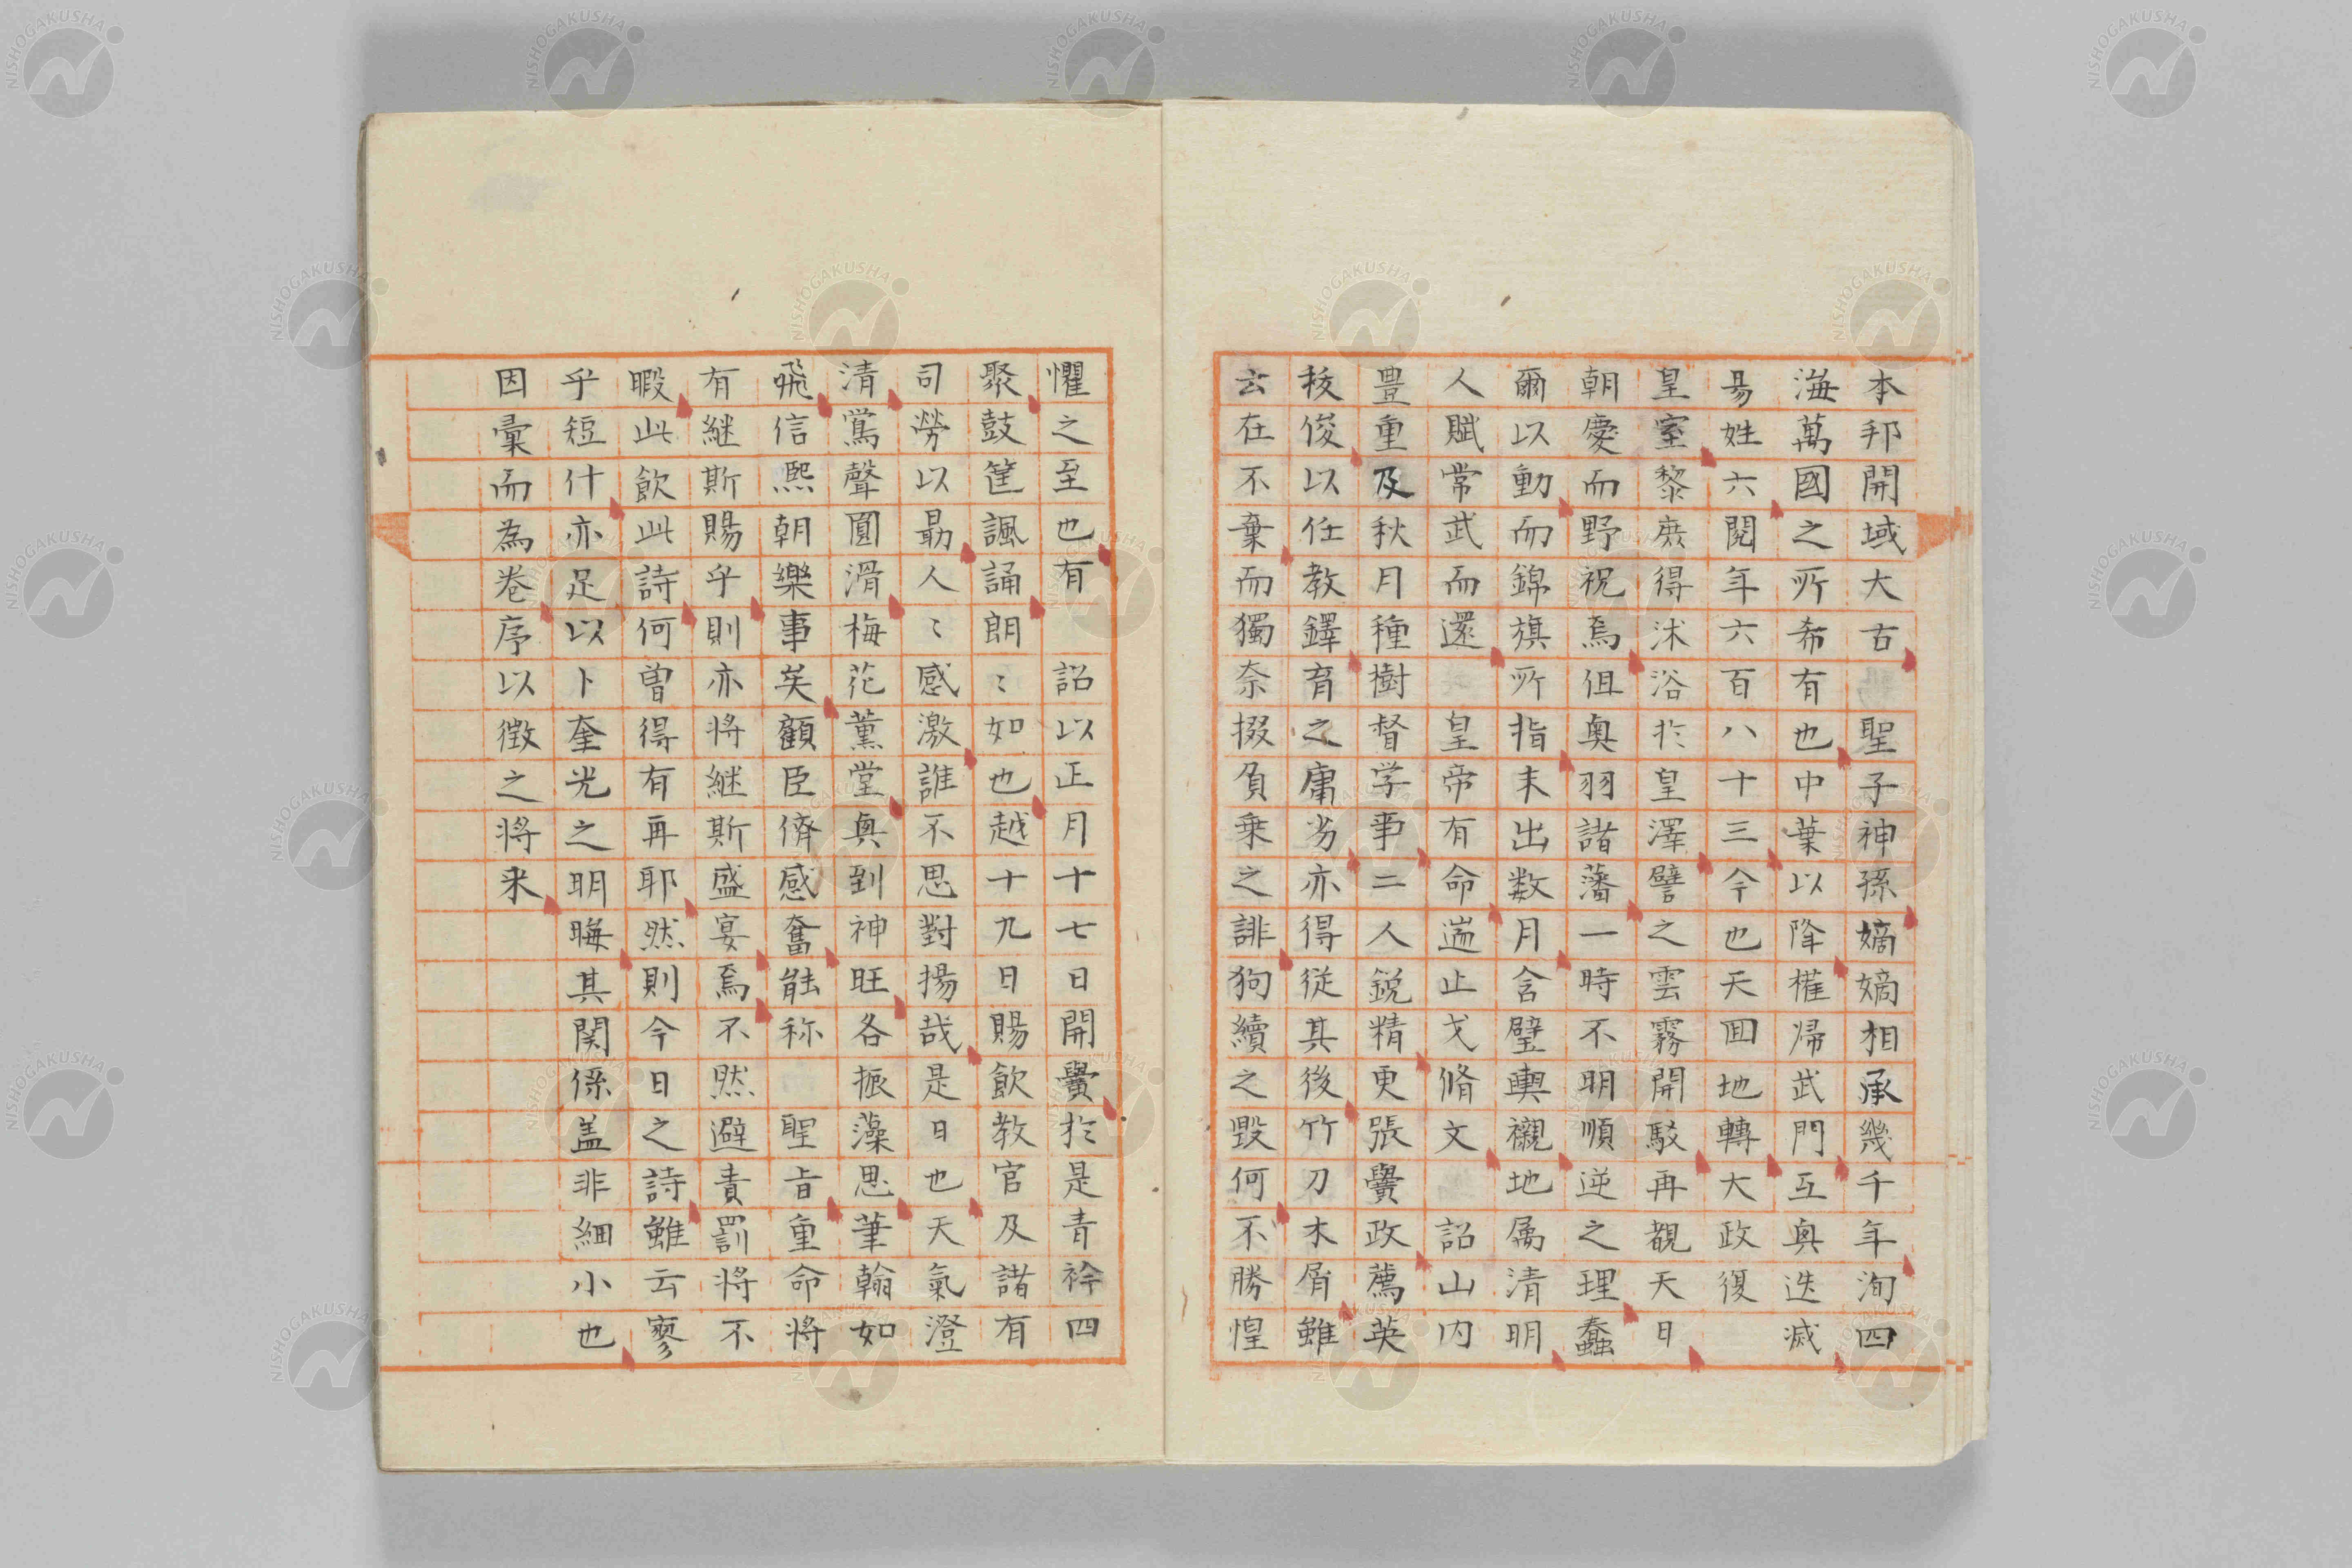 本邦開域大古　聖子神孫嫡嫡相承幾千年洵四
海萬國之所希有也中葉以降權帰武門互興迭滅
易姓六閲年六百八十三今也天回地轉大政復
皇室黎庶得沐浴於皇澤譬之雲霧開駁再覩天日
朝慶而野祝焉但奥羽諸藩一時不明順逆之理蠢
爾以動而錦旗所指未出数月含璧輿襯地属清明
人賦常武而還　皇帝有命遄止戈脩文　詔山内
豊重及秋月種樹督学事二人鋭精更張黌政薦英
抜俊以任教鐸育之之庸劣亦得從其後竹刀木屑雖
云在不棄而獨奈掇負乗之誹狗續之毀何不勝惶
懼之至也有　詔以正月十七日開黌於是青衿四
聚鼓筐諷誦朗〻如也越十九日賜飲教官及諸有
司勞以勗人〻感激誰不思對揚哉是日也天氣澄
清鶯聲圓滑梅花薫堂興到神旺各振藻思筆翰如
飛信熙朝樂事矣顧臣儕感奮能称　聖旨重命將
有継斯賜乎則亦將継斯盛宴焉不然避責罰將不
暇此飲此詩何曽得有再耶然則今日之詩雖云寥
乎短什亦足以卜奎光之明晦其関係盖非細小也
因彙而為巻序以徴之將来
NISHOGAKUSHA